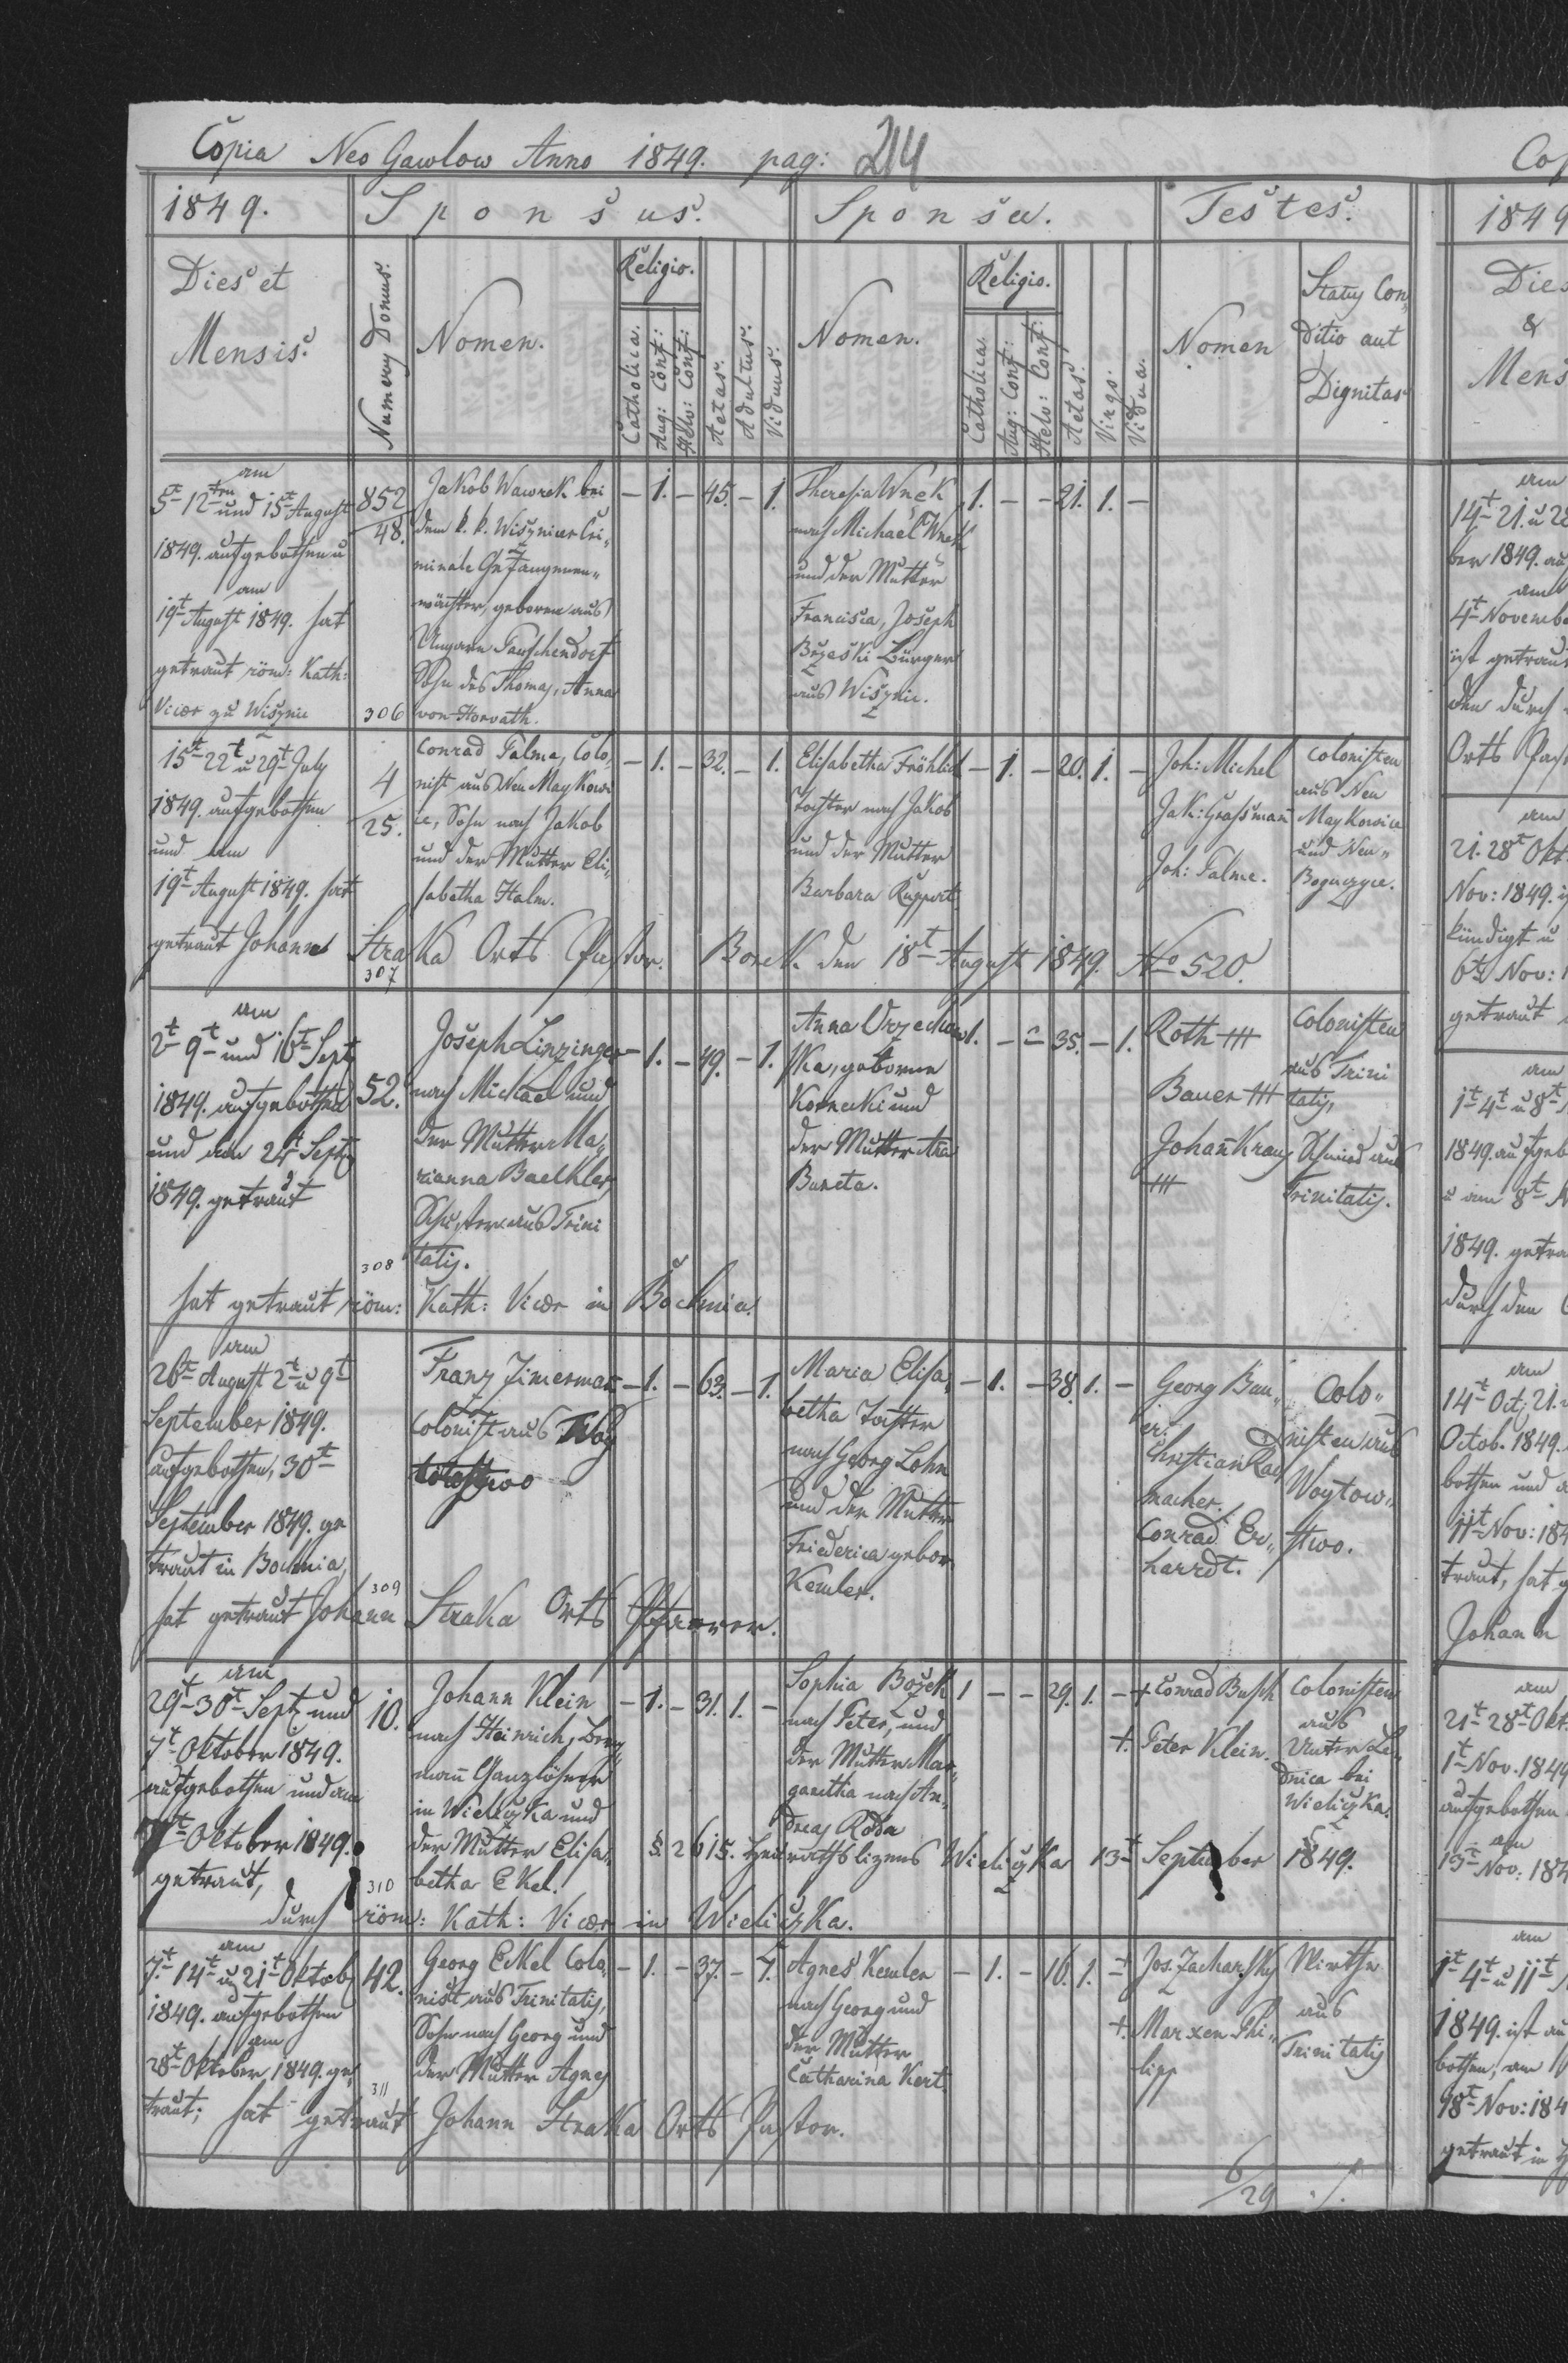 Copia Neo Gawlow Anno 1849. pag: 214
1849.
Sponsus.
Sponsa.
Testes.
Dies et
Mensis.
Numerus Domus.
Nomen.
Religio.
Catholica.
Aug: Conf:
Helv: Conf:
Aetas.
Adultus.
Viduus.
Nomen.
Religio.
Catholica.
Aug: Conf:
Helv: Conf:
Aetas.
Virgo.
Vidua.
Nomen
Status Con„
ditio aut
Dignitas
am
5t 12ten und 15t August
1849. aufgebothen u
am
19t August 1849. hat
getraut röm: Kath:
Vicar zu Wisznic
852
48.
306
Jakob Wawrek bei
dem k. k. Wisznicer Cri„
minale Gefangenen„
wächter, geboren aus
Ungarn Pauschendorf
Sohn des Thomas, Anna
von Horvath.
– 1. – 45. – 1.
Theresia Wnek
nach Michael Wnek
und der Mutter
Francisca, Joseph
Brzeski Bürger
aus Wisznic.
1. – – 21. 1. –
15t 22t u 29t July
1849. aufgebothen
und am
19t August 1849. hat
4
25.
Conrad Talme, Colo„
nist aus Neu Maykowi
ce, Sohn nach Jakob
und der Mutter Eli„
sabetha Halm.
– 1. – 32. – 1.
Elisabetha Fröhlich
Tochter nach Jakob
und der Mutter
Barbara Ruppert.
– 1. – 20. 1. –
Joh: Michel
Jak: Grassman
Joh: Talme.
Colonisten
aus Neu
Maykowice
und Neu„
getraut Johann Straka Orts Pastor. Borek den 18t August 1849. No 520.
307
am
2t 9t und 16t Sept
1849. aufgebothen
und den 24t Sept
1849. getraut
52.
308
Joseph Linzinger
nach Michael und
der Mutter Ma„
rianna Baelhler
Schuster aus Trini
tatis.
– 1. – 49. – 1.
Anna Orzechow
ska, geborene
Kornecki und
der Mutter
Bureta.
1. – – 35. – 1.
Roth +++
Bauer +++
Johañ Kraus
+++
Colonisten
aus Trini
tatis,
Schmied aus
Trinitatis.
hat getraut röm: Kath: Vicar in Bochnia.
am
26t August 2t u 9t
September 1849.
aufgebothen, 30t
September 1849. ge
traut in Bochnia,
309
Franz Zimerman
Colonist aus Woy
towstwo
– 1. – 63. – 1.
Maria Elisa„
betha Tochter
nach Georg Lohn
und der Mutter
Friederica gebor.
Kemler.
– 1. – 38. 1. –
Georg Bau„
er.
Christian Rad
macher.
Conrad Er„
hardt.
Colo„
nisten aus
Woytow„
stwo.
hat getraut Johann Straka Orts Pfarrer.
am
29t 30t Sept und
7t Oktober 1849.
aufgebothen und am
7t Oktober 1849.
getraut,
10.
310
Johann Klein
nach Heinrich, Berg
mañ Ganzlöhner
in Wieliczka und
der Mutter Elisa„
betha Ekel.
– 1. – 31. 1. –
Sophia Bożek
nach Peter, und
der Mutter Mar„
garetha nach An„
dreas Roda
1 – – 29. 1. –
+ Conrad Busch
+. Peter Klein.
Colonisten
aus
Unter Le„
dnica bei
Wieliczka.
§. 2615. Heirathslizens Wieliczka 13t September 1849.
durch röm: Kath: Vicar in Wieliczka.
am
7.t 14t u 21t Oktob
1849. aufgebothen
am
28t Oktober 1849. ge„
42.
311
Georg Eckel Colo„
nist aus Trinitatis,
Sohn nach Georg und
der Mutter Agnes
– 1. – 37. – 1.
Agnes Kemler
nach Georg und
der Mutter
Catharina Kert.
– 1. – 16. 1. –
+ Jos. Zacharsky
+. Marxen Phi„
lipp
Wirthe
aus
Trinitatis
traut; hat getraut Johann Straka Orts Pastor.
6/29 ./.
Cop
1849
Dies
&
Mens
am
14t 21. u 28
ber 1849. auf
am
4t Novembe
ist getraut
den durch
Orts Pas
am
21. 28t Okt
Nov: 1849.
kündigt u
6t Nov: 1
getraut
am
1t 4t u 8t
1849. aufgeb
u am 8t N
1849. getra
durch den
am
14t Oct, 21.
Octob. 1849.
bothen und a
11t Nov: 184
traut, hat g
Johann
am
21t 28t Okt
1t Nov. 1849
aufgebothen
am
13t Nov: 184
am
1t 4t u 11t
1849. ist au
bothen, am
18t Nov: 184
getraut in